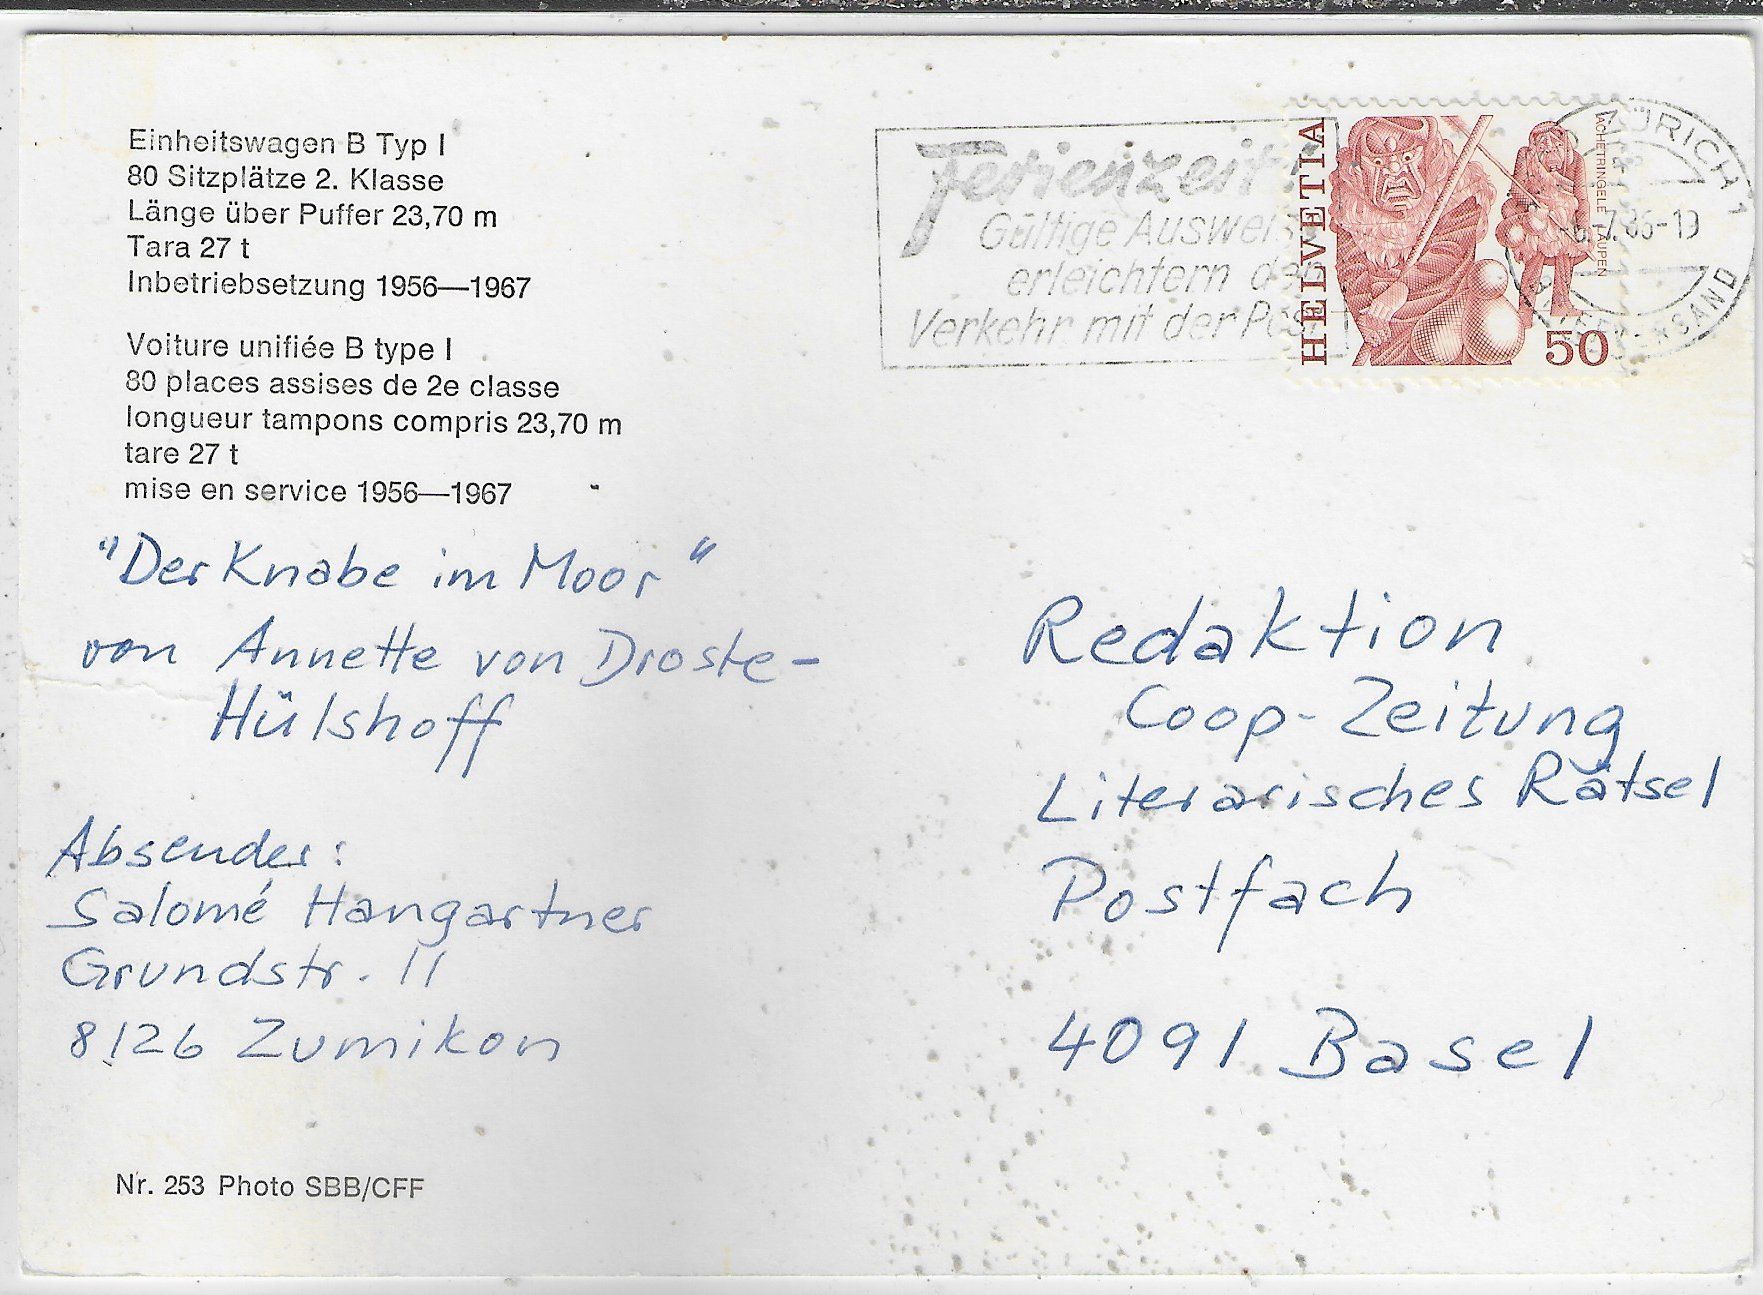 Einheitswagen B Typ I
80 Sitzplätze 2. Klasse
Länge über Puffer 23,70 m
Tara 27 t
Inbetriebsetzung 1956—1967
Voiture unifiée B type I
80 places assises de 2e classe
longueur tampons compris 23,70 m
tare 27 t
mise en service 1956—1967
"Der Knabe im Moor"
von Annette von Droste-
Hülshoff
Absender:
Salomé Hangartner
Grundstr. 11
8126 Zumikon
Nr. 253 Photo SBB/CFF
Ferienzeit
Gültige
erleichtern
Verkehr mit der Post
HELVETIA
ACHETRINGELE LAUPEN
50
ZÜRICH 1
7.86-19
Redaktion
Coop-Zeitung
Literarisches Rätsel
Postfach
4091 Basel